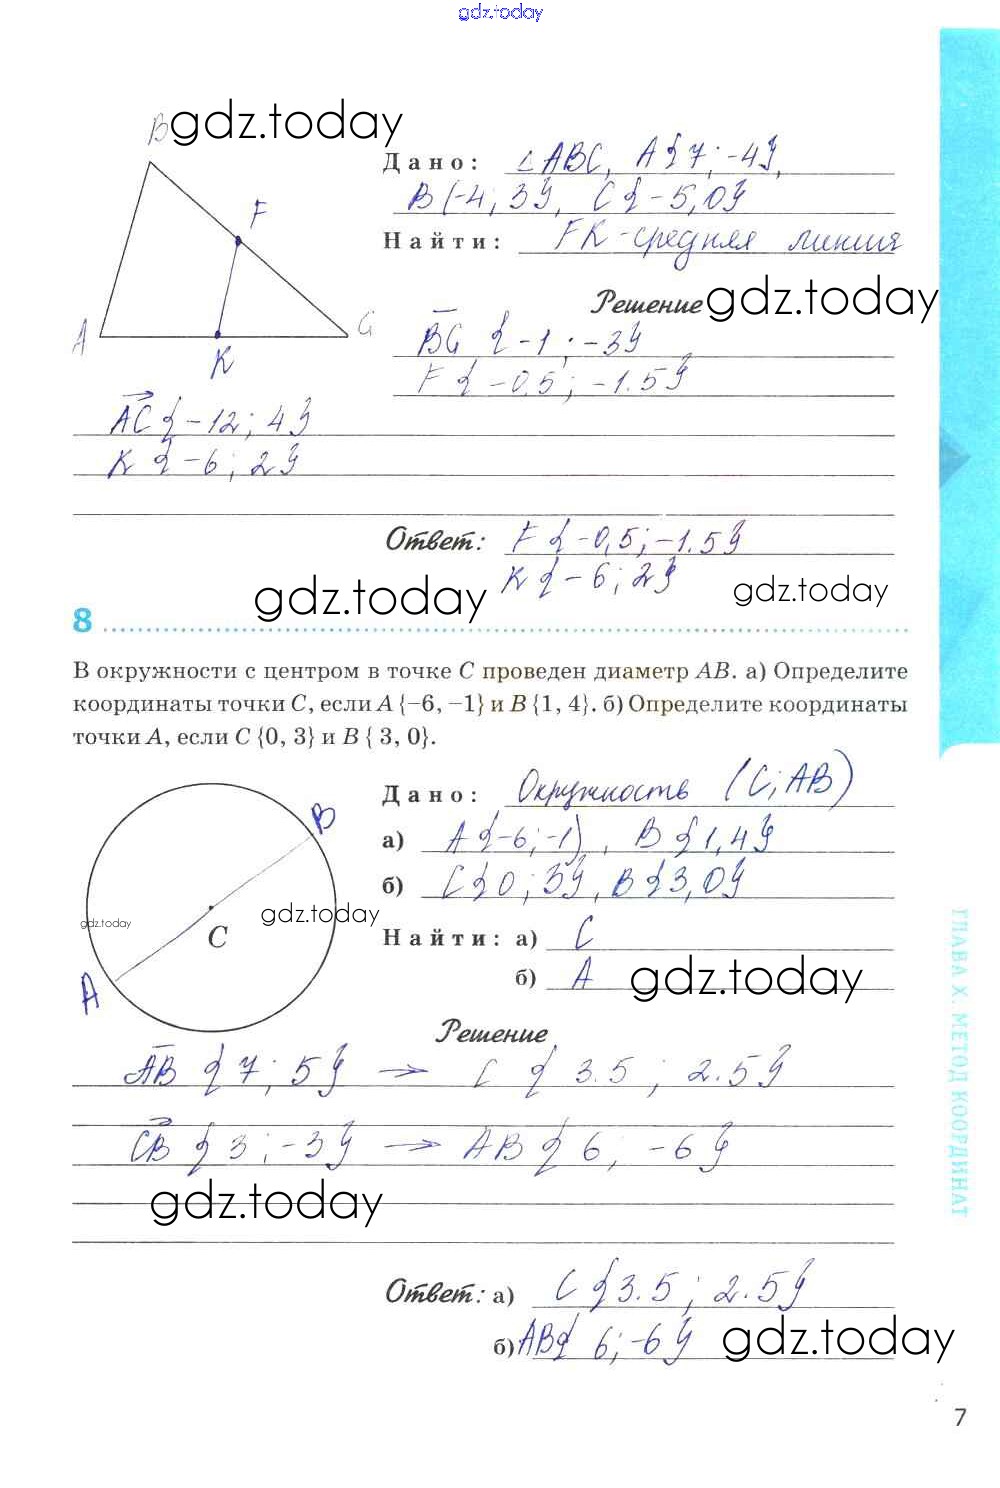 gdz.today
B gdz.today
Дано: △ABC, A{7; -4},
B{-4; 3}, C{-5,0}
F
Найти: FK-средняя линия
Решение gdz.today
A C
BC {-1; -3}
K
F {-0,5; -1.5}
AC {-12; 4}
K {-6; 2}
Ответ: F {-0,5; -1.5}
K {-6; 2}
gdz.today gdz.today
8
В окружности с центром в точке C проведен диаметр AB. а) Определите
координаты точки C, если A {−6, −1} и B {1, 4}. б) Определите координаты
точки A, если C {0, 3} и B { 3, 0}.
Дано: Окружность (C; AB)
B
а) A {-6; -1}, B {1, 4}
б) C {0; 3}, B {3, 0}
gdz.today
gdz.today
C
Найти: а) C
б) A gdz.today
A
Решение
AB {7; 5} → C {3.5; 2.5}
CB {3; -3} → AB {6; -6}
gdz.today
Ответ: а) C {3.5; 2.5}
б) AB{ 6; -6} gdz.today
ГЛАВА X. МЕТОД КООРДИНАТ
7